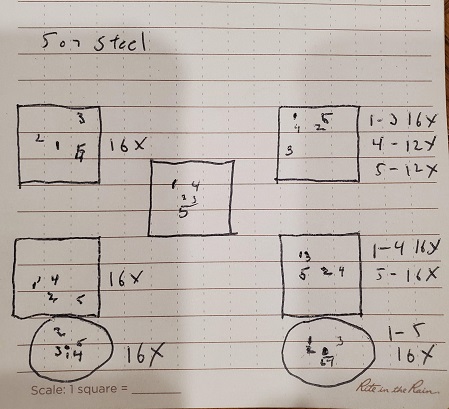 5 on steel
3
2 1 5
4
16X
1 5
4 2
3
1-3 16X
4-12X
5-12X
1 4
2 3
5
1 4
2 5
16X
13
5 2 4
1-4 16X
5-16X
2
5
3 1 4
16X
1 3
2
1-5
16X
Scale: 1 square =
Rite in the Rain